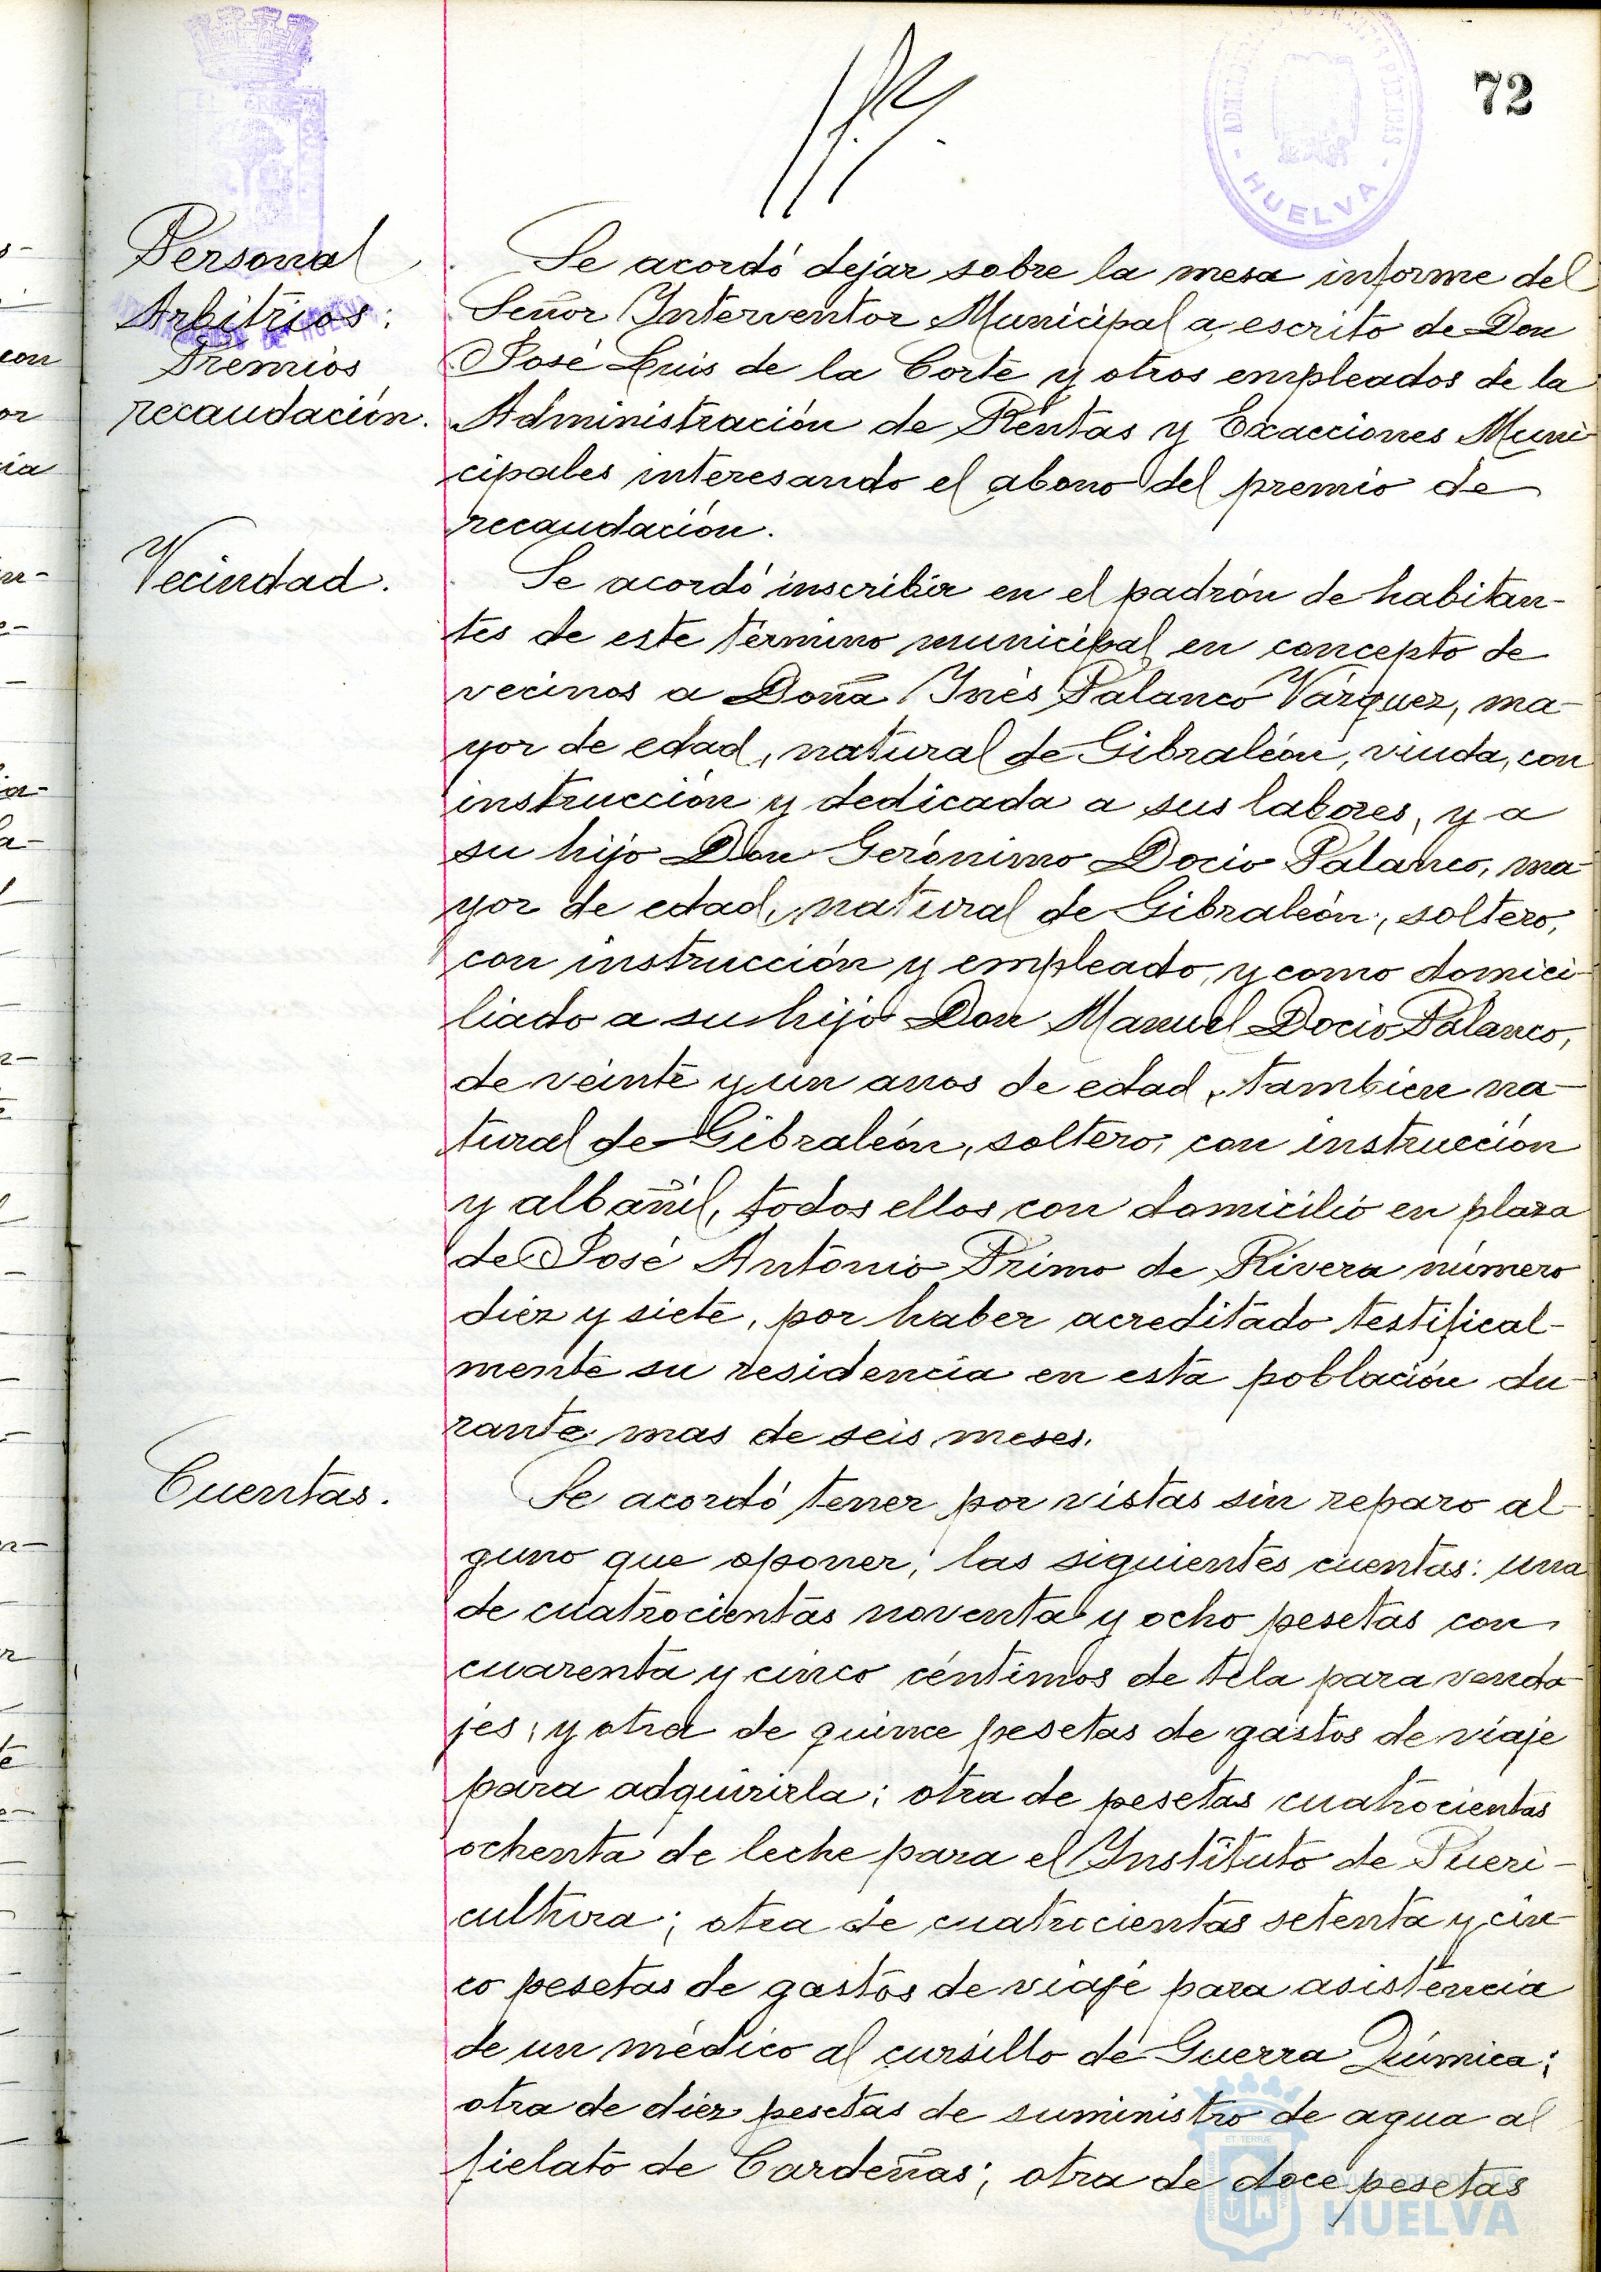 72
HUELVA
Personal
Arbitrios:
Premios
recaudación.
Se acordó dejar sobre la mesa informe del
Señor Interventor Municipal a escrito de Don
José Luis de la Corte y otros empleados de la
Administración de Rentas y Exacciones Muni-
cipales interesando el abono del premio de
recaudación.
Vecindad.
Se acordó inscribir en el padrón de habitan-
tes de este término municipal en concepto de
vecinos a Doña Inés Palanco Vázquez, ma-
yor de edad, natural de Gibraleón, viuda, con
instrucción y dedicada a sus labores, y a
su hijo Don Gerónimo Docio Palanco, ma-
yor de edad, natural de Gibraleón, soltero,
con instrucción y empleado, y como domici-
liado a su hijo Don Manuel Docio Palanco,
de veinte y un años de edad, tambien na-
tural de Gibraleón, soltero, con instrucción
y albañil, todos ellos con domicilio en plaza
de José Antonio Primo de Rivera número
diez y siete, por haber acreditado testifical-
mente su residencia en esta población du-
rante mas de seis meses.
Cuentas.
Se acordó tener por vistas sin reparo al-
guno que oponer, las siguientes cuentas: una
de cuatrocientas noventa y ocho pesetas con
cuarenta y cinco céntimos de tela para venda
jes; y otra de quince pesetas de gastos de viaje
para adquirirla; otra de pesetas cuatrocientas
ochenta de leche para el Instituto de Pueri-
cultura; otra de cuatrocientas setenta y cin-
co pesetas de gastos de viaje para asistencia
de un médico al cursillo de Guerra Química;
otra de diez pesetas de suministro de agua al
fielato de Cardeñas; otra de doce pesetas
Ayuntamiento de
HUELVA